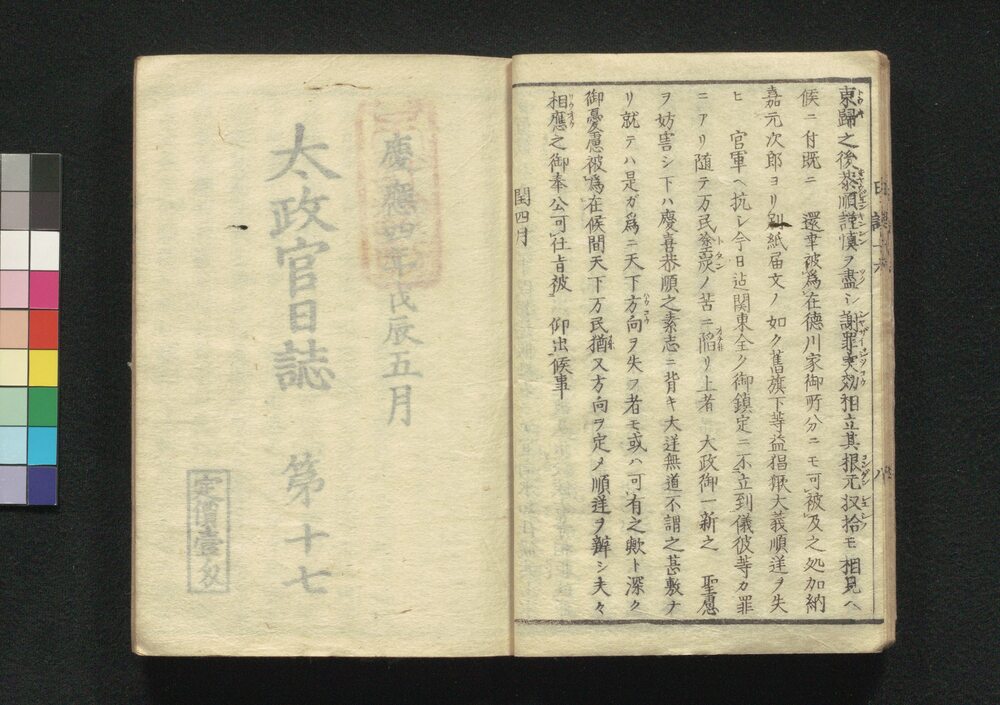 東歸之後恭順謹慎ヲ盡シ謝罪実効相立其根元収拾モ相見ヘ
候ニ付既ニ 還幸被爲在徳川家御所分ニモ可被及之処加納
嘉元次郎ヨリ別紙届文ノ如ク舊旗下等益猖獗大義順逆ヲ失
ヒ 官軍ヘ抗シ今日迠関東全ク御鎮定ニ不立到儀彼等カ罪
ニアリ随テ万民塗炭ノ苦ニ陥リ上者 大政御一新之 聖慮
ヲ妨害シ下ハ慶喜恭順之素志ニ背キ大逆無道不謂之甚敷ナ
リ就テハ是ガ爲ニ天下方向ヲ失フ者モ或ハ可有之歟ト深ク
御憂慮被爲在候間天下万民猶又方向ヲ定メ順逆ヲ辨シ夫々
相應之御奉公可仕旨被 仰出候事
閏四月
慶應四年戊辰五月
太政官日誌 第十七
定價壹匁